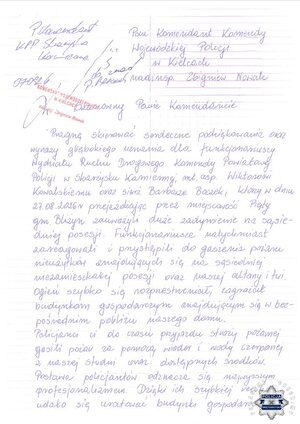 Pan Komendant Komendy
Wojewódzkiej Policji
w Kielcach
nadinsp. Zbigniew Nowak
Szanowny Panie Komendancie
Pragnę skierować serdeczne podziękowania oraz
wyrazy głębokiego uznania dla funkcjonariuszy
Wydziału Ruchu Drogowego Komendy Powiatowej
Policji w Skarżysku Kamiennej, mł. asp. Wiktorowi
Kowalskiemu oraz sierż. Bartosza Boczek, którzy w dniu
27.08 przejeżdżając przez miejscowość
gm. Bliżyn zauważyli duże zadymienie na sąsie-
dniej posesji. Funkcjonariusze natychmiast
zareagowali i przystąpili do gaszenia pożaru
nieużytków znajdujących się na sąsiedniej
niezamieszkałej posesji oraz naszej altany i tui.
Ogień szybko się rozprzestrzeniał, zagrażał
budynkom gospodarczym znajdującym się w bez-
pośrednim pobliżu naszego domu.
Policjanci do czasu przyjazdu straży pożarnej
gasili pożar za pomocą wiader i wody czerpanej
z naszej studni oraz dostępnych środków.
Postawa policjantów odznacza się najwyższym
profesjonalizmem. Dzięki ich szybkiej
udało się uratować budynki gospodarcze
POLICJA